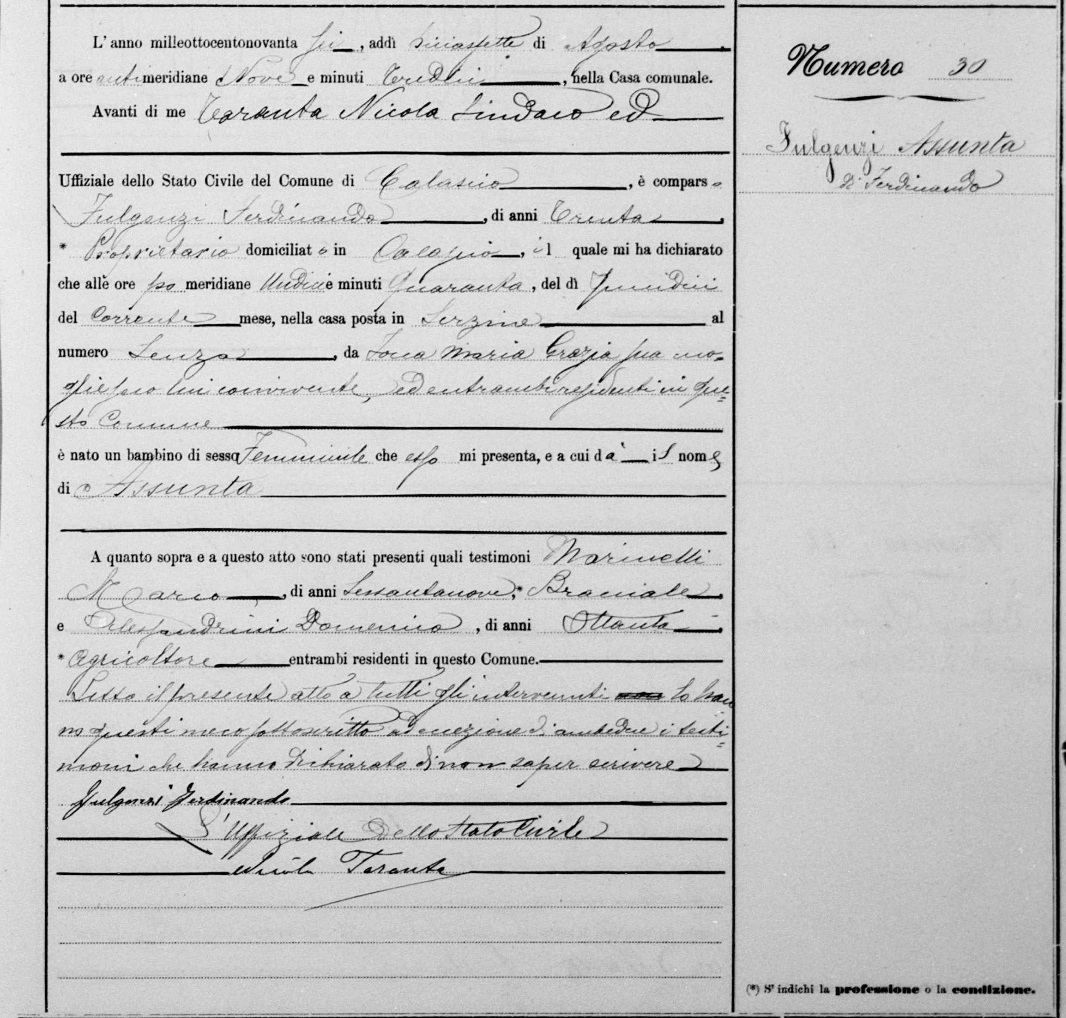 L'anno milleottocentonovanta sei, addì diciassette di Agosto
a ore antimeridiane Nove e minuti tredici, nella Casa comunale.
Avanti di me Taranta Nicola Sindaco ed
Uffiziale dello Stato Civile del Comune di Calascio, è comparso
Fulgenzi Ferdinando, di anni trenta
* Proprietario domiciliato in Calascio, il quale mi ha dichiarato
che alle ore po meridiane Undici e minuti Quaranta, del dì quindici
del Corrente mese, nella casa posta in
al
numero Senza, da Maria Grazia sua mo-
glie seco lui convivente, ed entrambi residenti in que-
sto Comune
è nato un bambino di sesso Femminile che esso mi presenta, e a cui dà il nome
di Assunta
A quanto sopra e a questo atto sono stati presenti quali testimoni Marinelli
Mario, di anni Sessantanove, * Bracciale,
e Alessandrini Domenico, di anni Ottanta,
* Agricoltore entrambi residenti in questo Comune.
Letto il presente atto a tutti gl'intervenuti lo han-
no questi meco sottoscritto ad eccezione di ambedue i testi-
moni che hanno dichiarato di non saper scrivere
Fulgenzi Ferdinando
L'Uffiziale dello Stato Civile
Nicola Taranta
Numero 30
Fulgenzi Assunta
di Ferdinando
(*) S'indichi la professione o la condizione.